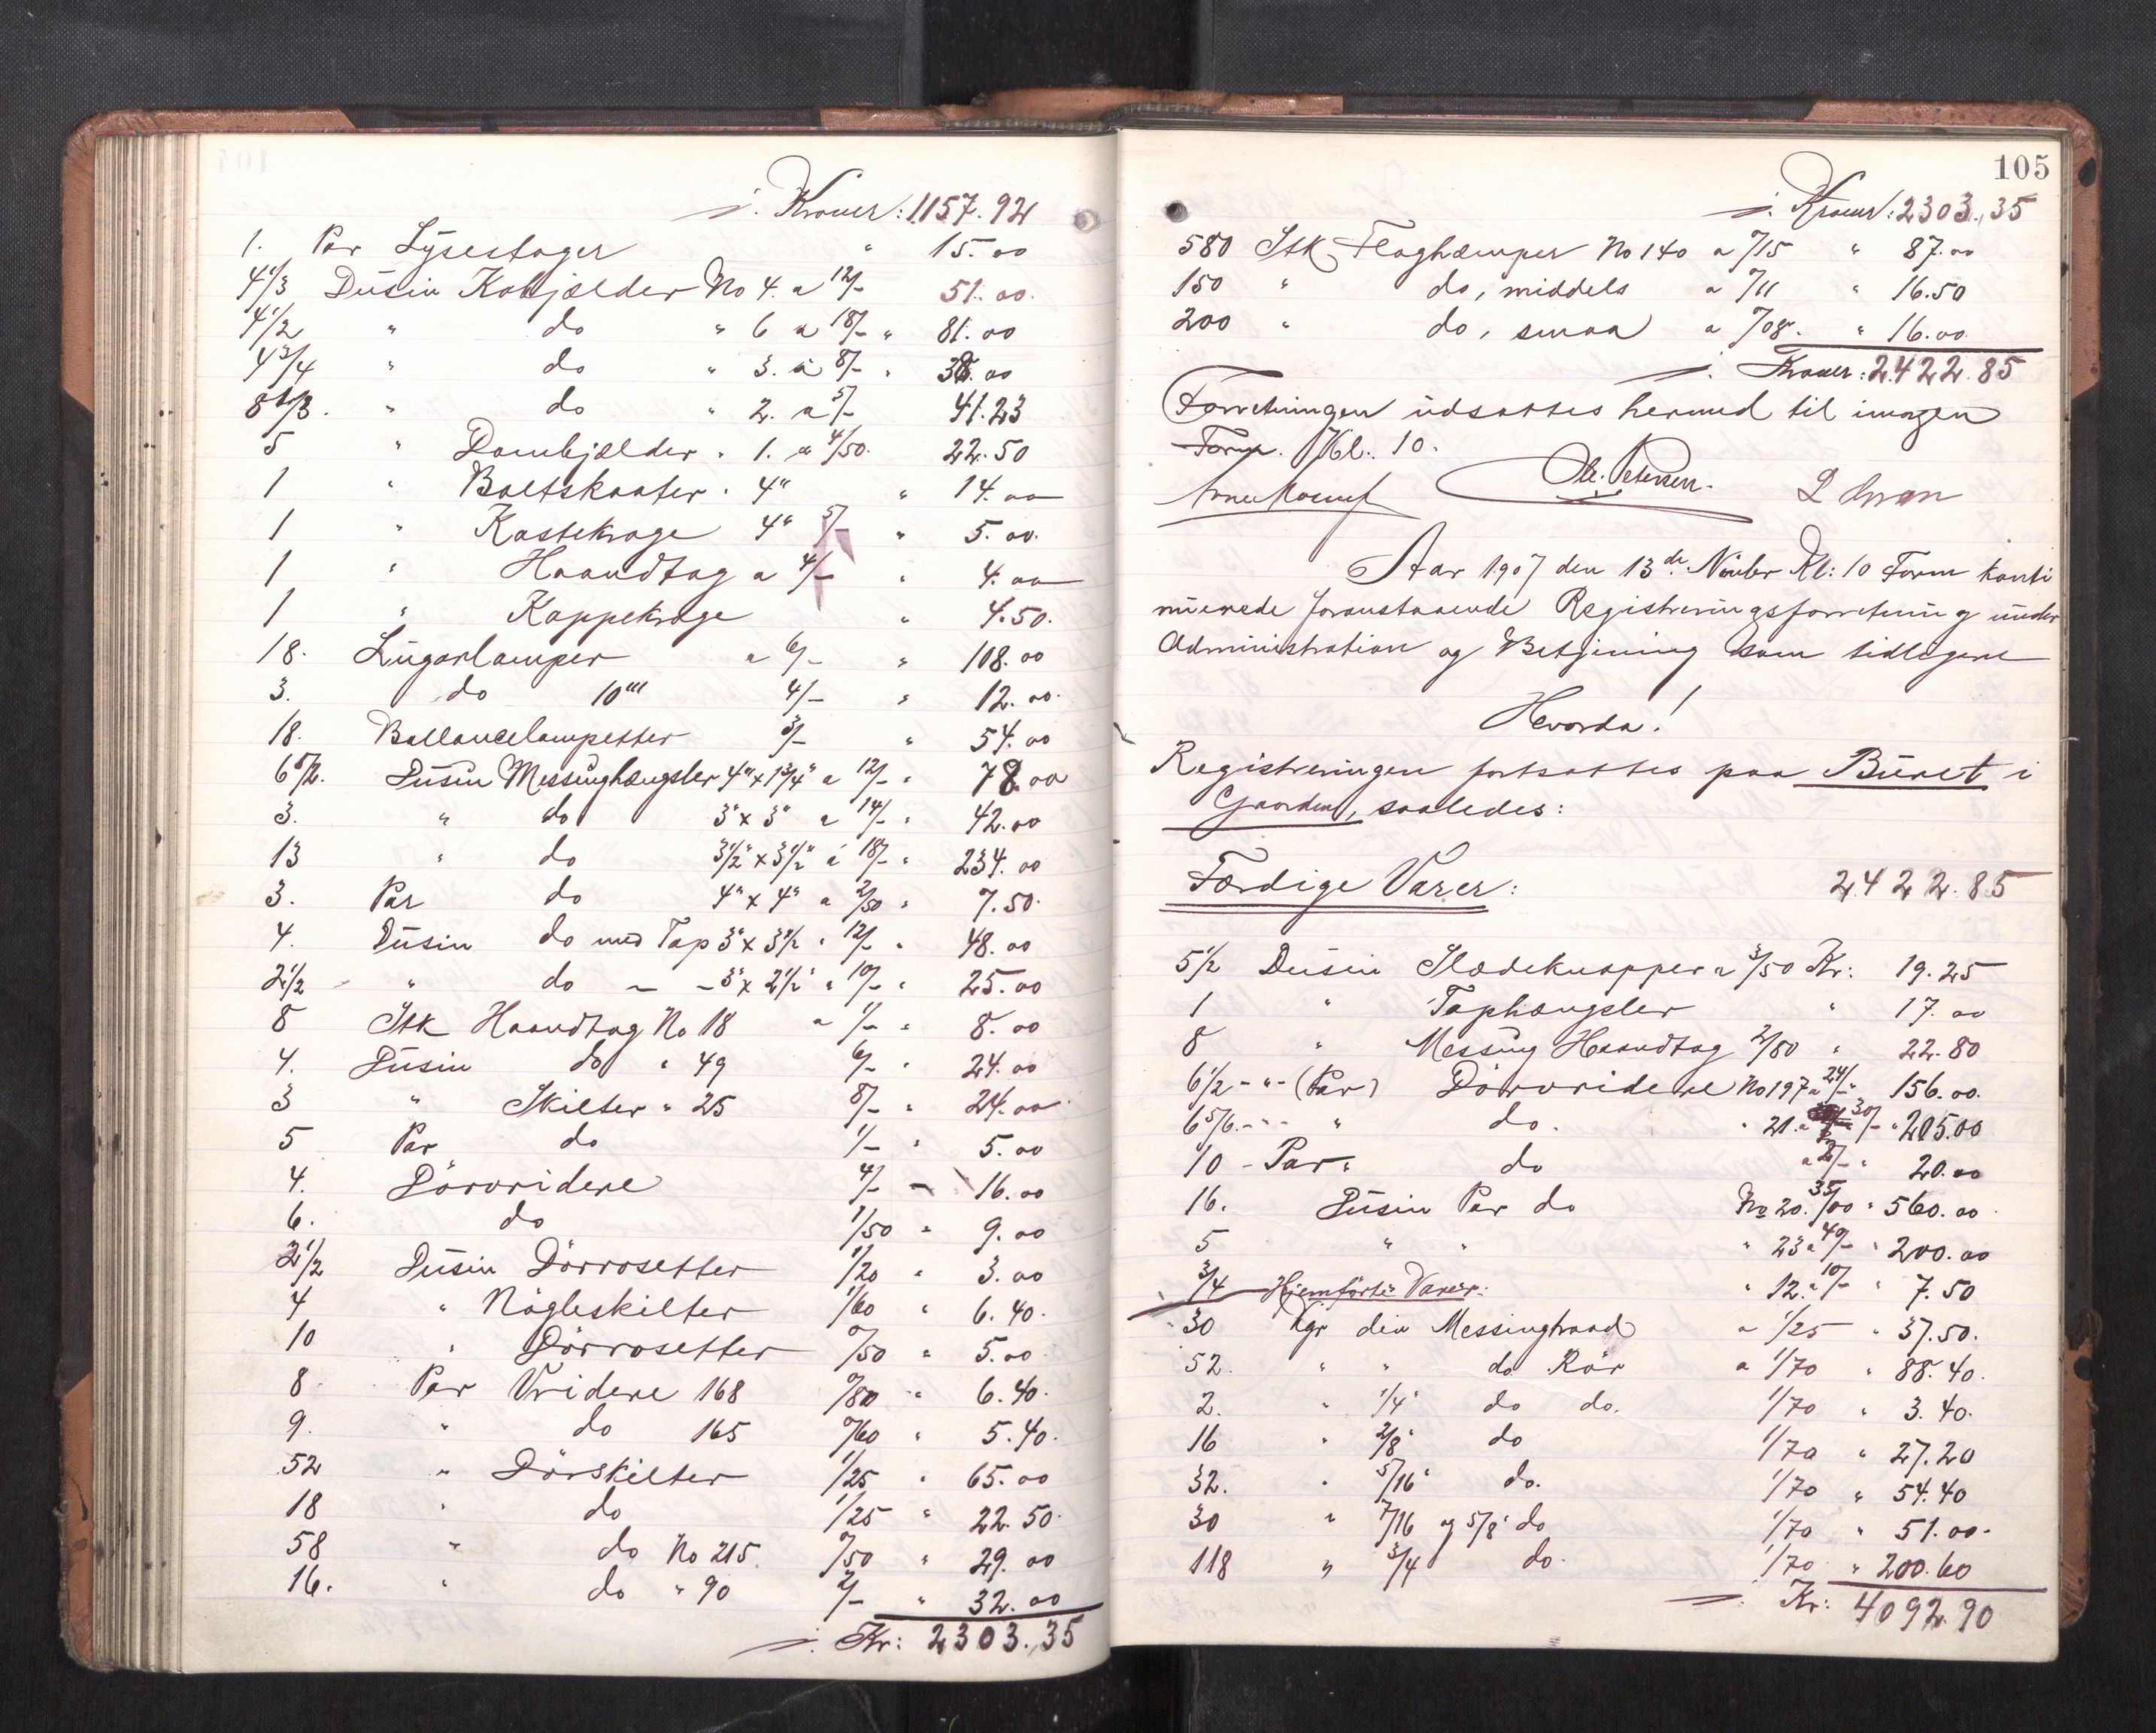 /. Kroner: 1157.92
1. Par Lysestager " 15.00
4 1/3 Dusin Kobjælder No 4. a 12/- 51.00.
4 1/2 " do " 6 a 18/- " 81.00
4 3/4 " do " 3. a 8/- " 38.00
8 1/3. " do " 2. a 5/- 41.23
5 " Dombjælder " 1. a 4/50. 22.50
1 " Boltskaater " 4" " 14.00
1 " Kastekroge 4" 5/- " 5.00.
1 " Haandtag a 4/- " 4.00
1 " Kappekroge " 4.50.
18. Lugarlamper a 6/- " 108.00
3. do 10''' 4/- " 12.00.
18. Ballancelampetter 3/- " 54.00
6 1/2. Dusin Messinghængsler 4" x 1 3/4" a 12/- " 78.00
3. " do 3" x 3" a 14/- " 42.00
13 " do 3 1/2" x 3 1/2" a 18/- " 234.00
3. Par do 4" x 4" a 2/50 " 7.50.
4. Dusin do med Tap 3" x 3 1/2 " 12/- " 48.00
2 1/2 " do - - 3" x 2 1/2" " 10/- " 25.00
8 Stk Haandtag No 18 a 1/- " 8.00
4. Dusin do " 49 6/- " 24.00
3 " Skilter " 25 8/- " 24.00
5 Par do 1/- " 5.00
4. Dörvridere 4/- - 16.00
6. do 1/50 " 9.00
2 1/2 Dusin Dörrosetter 1/20 " 3.00
4 " Nögleskilter 1/60 " 6.40.
10 " Dörrosetter 0/50 " 5.00
8 Par Vridere 168 0/80 " 6.40.
9. " do 165 0/60 " 5.40.
52 " Dörskilter 1/25 " 65.00
18 " do 1/25 " 22.50.
58 " do No 215. 0/50 " 29.00
16. " do " 90 2/- " 32.00
/. Kr: 2303.35
105
/. Kroner: 2303.35
580 Stk Flaghæmper No 140 a 0/15 " 87.00
150 " do, middels a 0/11 " 16.50
200 " do, smaa a 0/08. " 16.00
/. Kroner: 2422.85
Forretningen udsattes hermed til imorgen
Form. Kl. 10.
Ole Petersen.
Aar 1907 den 13de Novbr Kl: 10 Form konti
nuerede foranstaaende Registreringsforretning under
Administration og Betjening som tidligere
Hvorda!
Registreringen fortsattes paa Buret i
Gaarden, saaledes:
Færdige Varer: 2422.85
5 1/2 Dusin Slædeknapper a 3/50 Kr: 19.25
1 " Taphængsler " 17.00
8 " Messing Haandtag 2/80 " 22.80
6 1/2 - " - (Par) Dörvridere No 197 a 24/- " 156.00.
6 5/6. - - " do. " 21. a 30/- " 205.00
10 - Par " do a 2/- " 20.00
16. Dusin Par do No 20. 35/00 " 560.00
5 " " " 23 a 40/- " 200.00
3/4 Hjemförte Varer: " 12. a 10/- " 7.50
30 Kgr div Messingtraad a 1/25 " 37.50.
52. " " do Rör a 1/70 " 88.40.
2. " 1/4" do do. 1/70 " 3.40.
16 " 2/8" do 1/70 " 27.20
32. " 5/16" do. 1/70 " 54.40
30 " 7/16 og 5/8" do 1/70 " 51.00.
118 " 3/4 do. 1/70 " 200.60
/. Kr: 4092.90